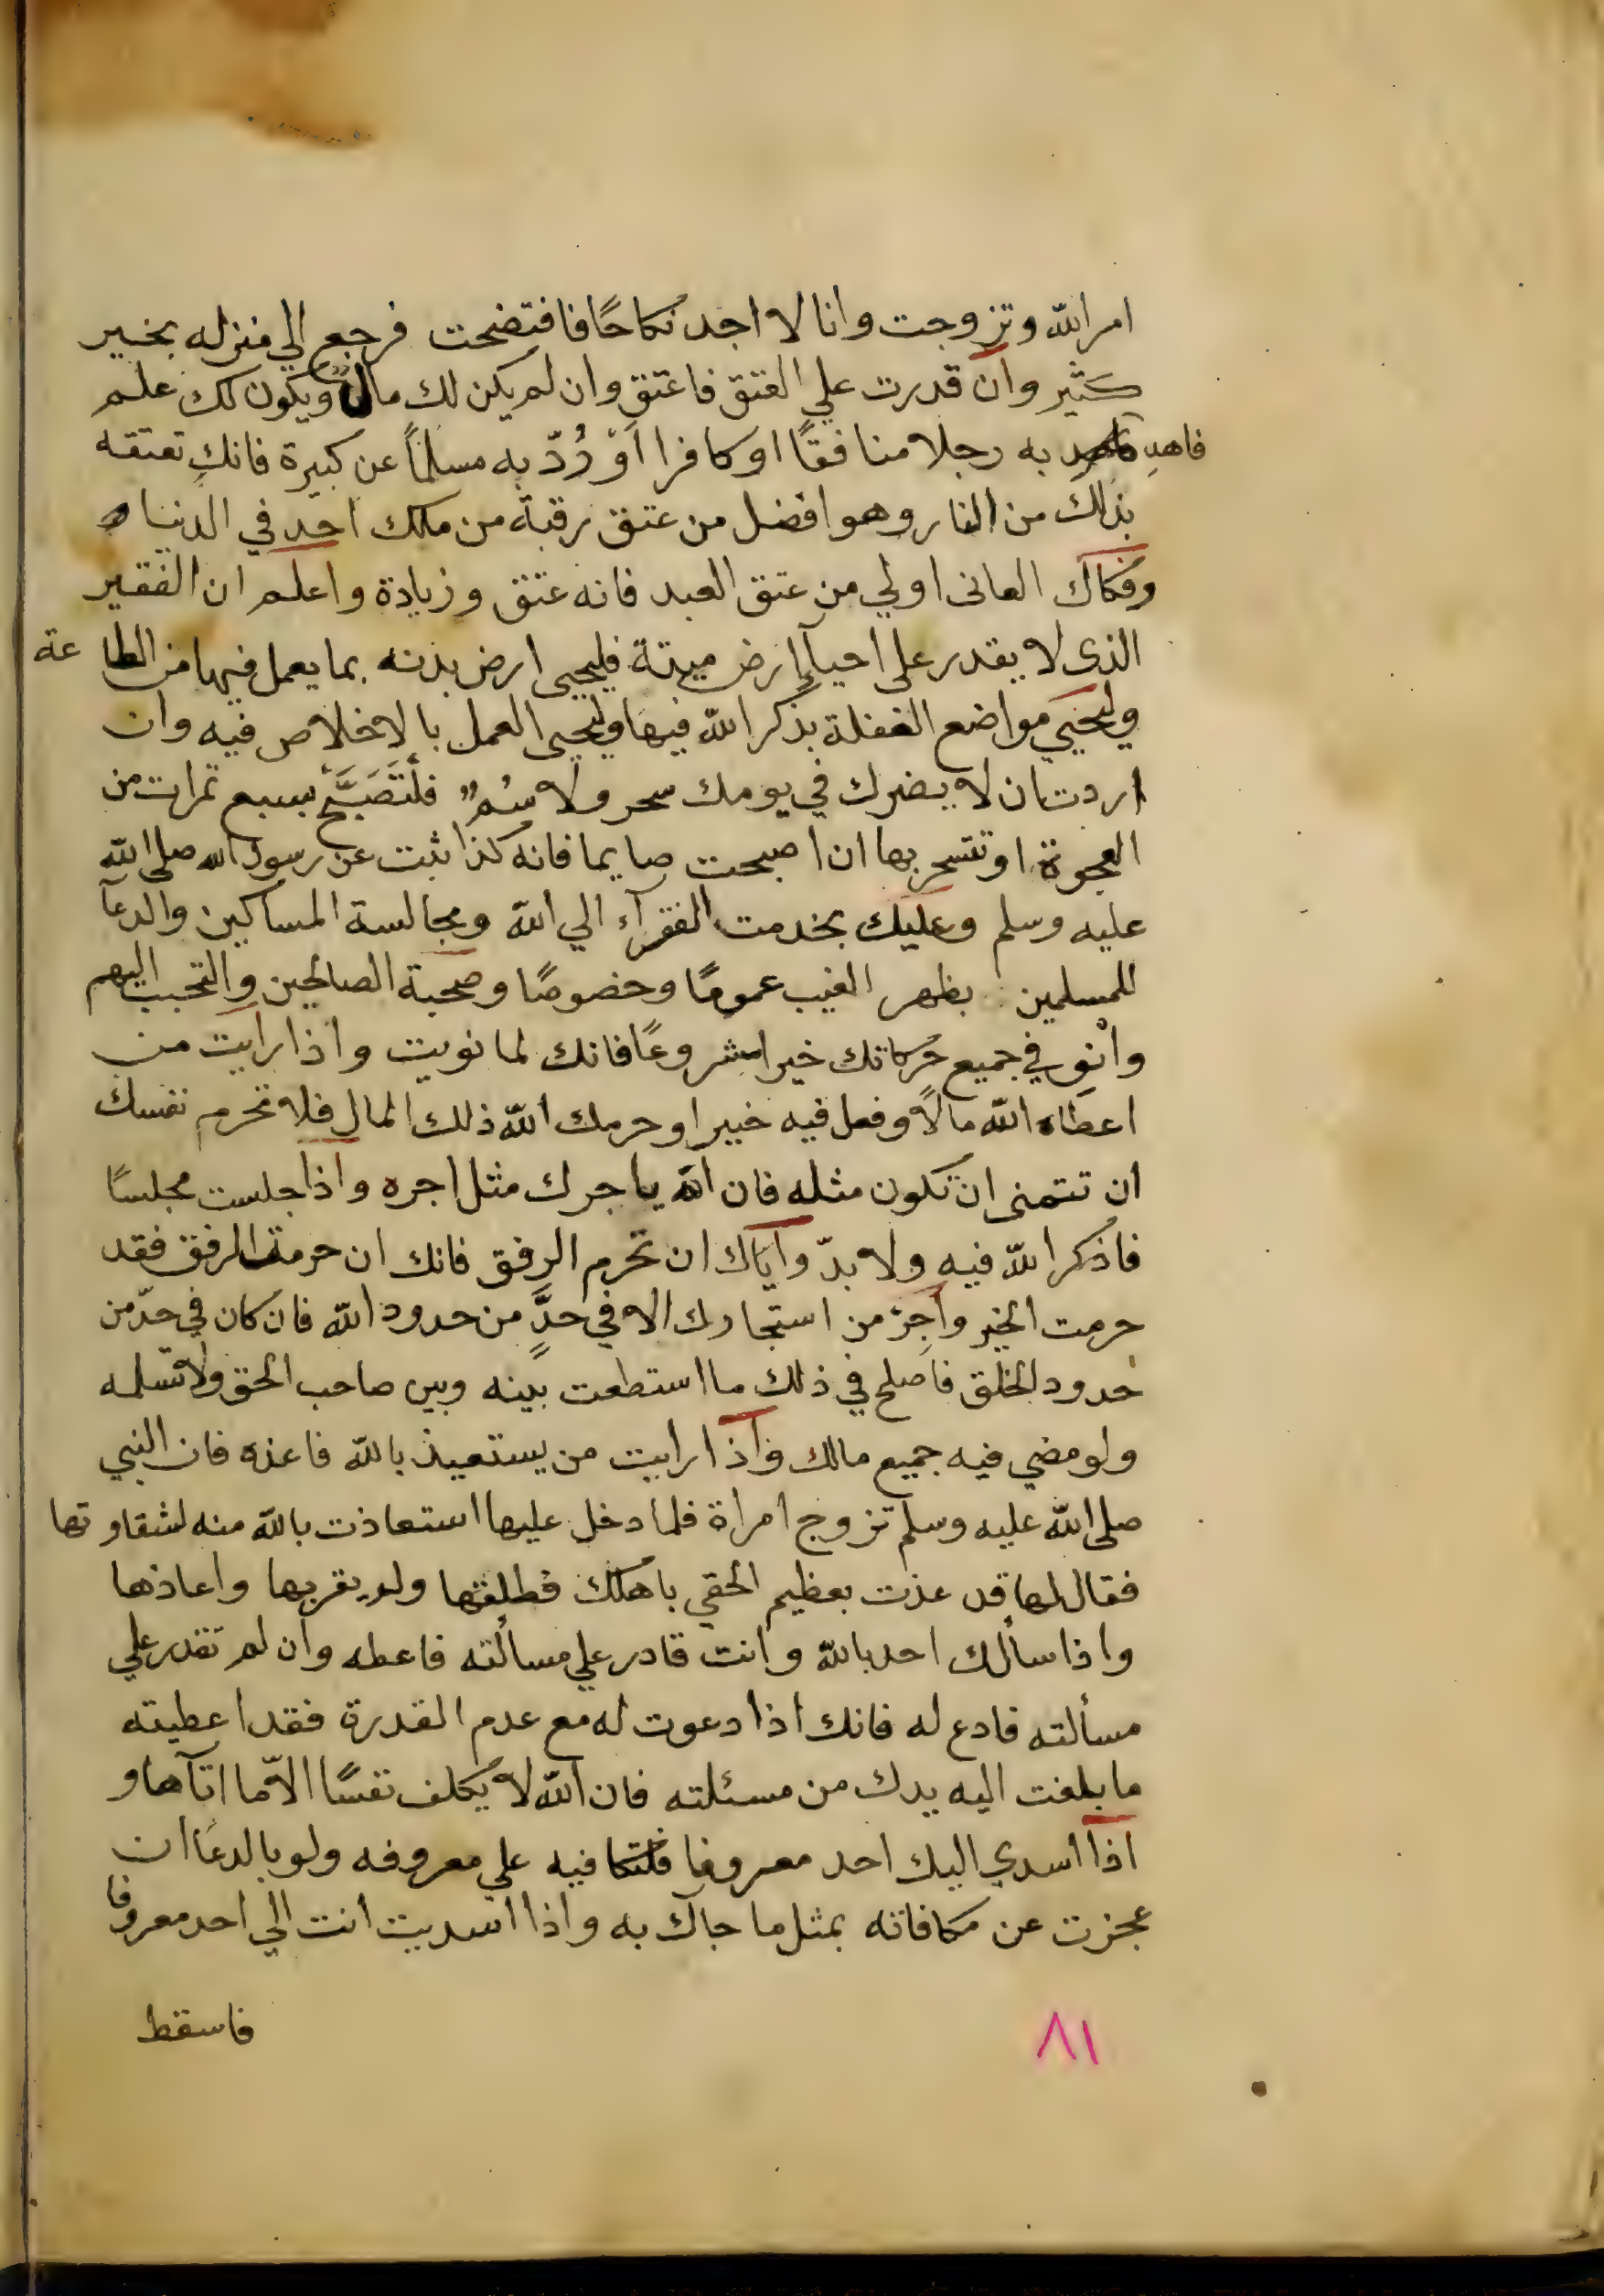 امر الله وتزوجت وانا لا اجد نكاحًا فافتضحت فرجع الي منزله بخير
كَثير وان قدرت علي العتق فاعتق وان لم يكن لك مالٌ ويكون لك علم
فاهدِ به رجلا منافقًا او كافرا اَوْ رُدّ به مسلمًا عن كبيرة فانك تعتقه
بذلك من النار وهو افضل من عتق رقبة من ملك احد في الدنيا
وفكاك العانى اولي من عتق العبد فانه عتق وزيادة واعلم ان الفقير
الذى لا يقدر على احيآءِ ارض ميتة فليحيى ارض بدنه بما يعمل فيها من الطاعة
وليحيي مواضع الغفلة بذكر الله فيها وليحيى العمل بالاخلاص فيه وان
اردت ان لا يضرك في يومك سحر ولا سُمٌ فلْتَصَبَّح بسبع تمرات من
العجوة او تتسحر بها ان اصبحت صايما فانه كذا ثبت عن رسول الله صلى الله
عليه وسلم وعليك بخدمت الفقرآء الي الله ومجالسة المساكين والدعآ
للمسلمين بظهر الغيب عمومًا وخصوصًا وصحبة الصالحين والتحبب اليهم
وانْوِ في جميع حركاتك خيرا مشروعًا فانك لما نويت واذا رايت من
اعطاه الله مالًا وفعل فيه خيرا وحرمك الله ذلك المال فلا تحرم نفسك
ان تتمنى ان تكون مثله فان الله ياجرك مثل اجره واذا جلست مجلسًا
فاذكر الله فيه ولا بدّ واياك ان تحرم الرفق فانك ان حرمت الرفق فقد
حرمت الخير واَجِرْ من استجارك الا في حدٍّ من حدود الله فان كان في حدّ من
حدود الخلق فاصلح في ذلك ما استطعت بينه وبين صاحب الحق ولا تسلمه
ولو مضي فيه جميع مالك واذا رايت من يستعيذ بالله فاعذه فان النبي
صلى الله عليه وسلم تزوج امراة فلما دخل عليها استعاذت بالله منه لشقاوتها
فقال لها قد عذت بعظيم الحقي باهلك فطلقها ولم يقربها واعاذها
واذا سألك احد بالله وانت قادر علي مسألته فاعطه وان لم تقدر علي
مسألته فادع له فانك اذا دعوت له مع عدم القدرة فقد اعطيته
ما بلغت اليه يدك من مسئلته فان الله لا يكلف نفسًا الاّ ما اتآها و
اذا اسدي اليك احد معروفا فلتكافيه علي معروفه ولو بالدعآ ان
عجزت عن مكافاته بمثل ما جآك به واذا اسديت انت الي احد معروفا
فاسقط
٨١